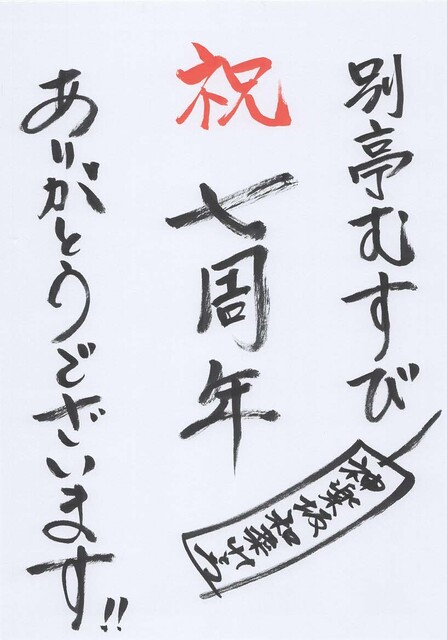 別亭むすび
神楽坂和菜れとろ
祝
七周年
ありがとうございます!!